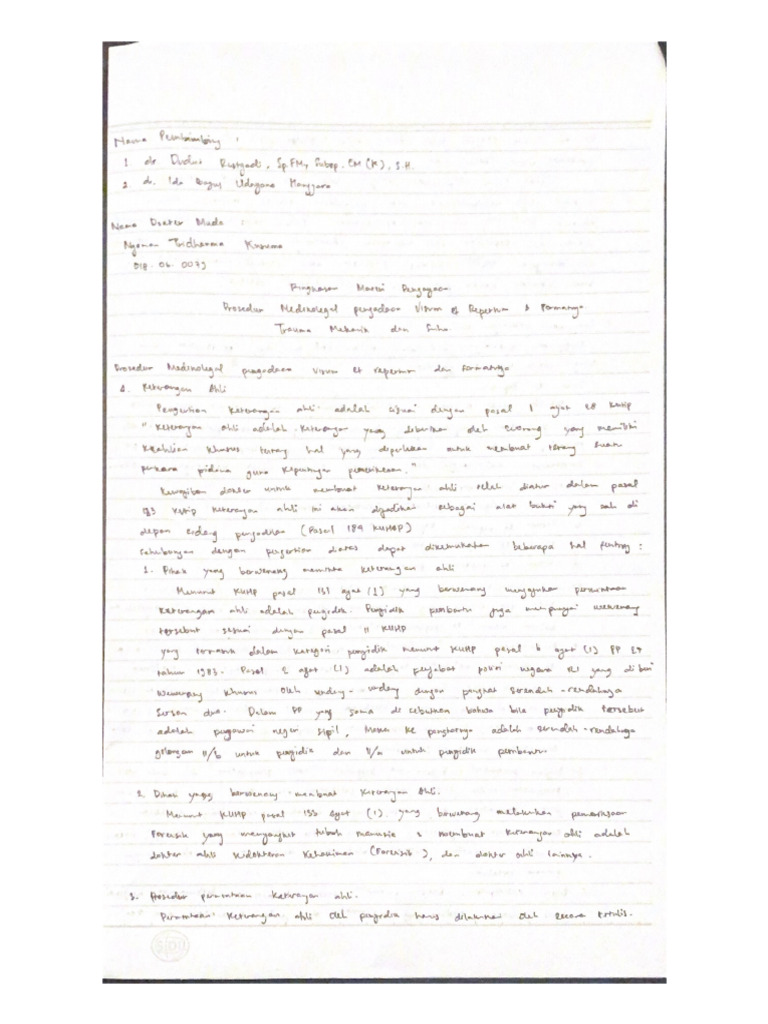 Nama Pembimbing :
1. dr Dudut Rustyadi, Sp.FM, Subsp. EM (K), S.H.
2. dr. Ida Bagus Udayana Manggara
Nama Dokter Muda :
Nyoman Tridharma Kusuma
018.06.0079
Ringkasan Materi Pengayaan
Prosedur Medikolegal pengadaan Visum et Repertum & Formatnya
Trauma Mekanik dan Suhu
Prosedur Medikolegal pengadaan Visum et repertum dan formatnya
A. Keterangan Ahli
Pengertian keterangan ahli adalah sesuai dengan pasal 1 ayat 28 KUHP
" Keterangan ahli adalah keterangan yang diberikan oleh seorang yang memiliki
keahlian khusus tentang hal yang diperlukan untuk membuat terang suatu
perkara pidana guna kepentingan pemeriksaan."
Kewajiban dokter untuk membuat keterangan ahli telah diatur dalam pasal
keterangan ahli ini akan dijadikan sebagai alat bukti yang sah di
depan sidang pengadilan (Pasal 184 KUHAP)
Sehubungan dengan pengertian diatas dapat dikemukakan beberapa hal penting :
1. Pihak yang berwenang meminta keterangan ahli
Menurut KUHP pasal 131 ayat (1) yang berwenang mengajukan permintaan
keterangan ahli adalah penyidik. Penyidik pembantu juga mempunyai wewenang
tersebut sesuai dengan pasal 11 KUHP
yang termasuk dalam kategori penyidik menurut KUHP pasal 6 ayat (1) PP 27
tahun 1983. Pasal 2 ayat (1) adalah penjabat polisi negara RI yang diberi
wewenang khusus oleh undang-undang dengan pangkat serendah-rendahnya
Sersan dua. Dalam PP yang sama disebutkan bahwa bila penyidik tersebut
adalah pegawai negeri sipil, Maka kepangkatannya adalah serendah-rendahnya
golongan II/b untuk penyidik dan II/a untuk penyidik pembantu.
2. Pihak yang berwenang membuat keterangan Ahli.
Menurut KUHP pasal 133 ayat (1), yang berwenang melakukan pemeriksaan
Forensik yang menyangkut tubuh manusia & membuat keterangan ahli adalah
dokter ahli kedokteran kehakiman (Forensik), dan dokter ahli lainnya.
3. Prosedur permintaan keterangan ahli.
Permintaan keterangan ahli oleh penyidik harus dilakukan oleh secara tertulis.
SIDU